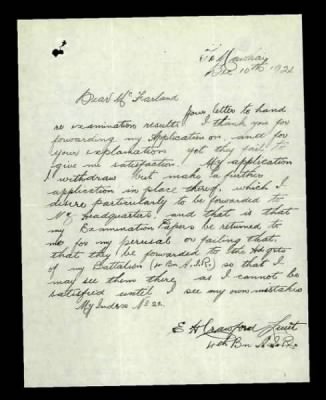 Mowbray
Dec 10th 1921
Dear McFarland
Your letter to hand
re examination results I thank you for
forwarding my Application on, and for
your explanation yet they fail to
give me satisfaction. My application
I withdraw but make a further
application in place thereof, which I
desire particularly to be forwarded to
Headquarters, and that is that
my Examination Papers be returned to
me for my perusal or failing that,
that they be forwarded to the Hqrs
of my Battalion (4 Bn A.I.Rx.) so that I
may see them there as I cannot be
satisfied until I see my own mistakes
My Index No 22.
E H Crawford Lieut
4th Bn A.I.Rx.